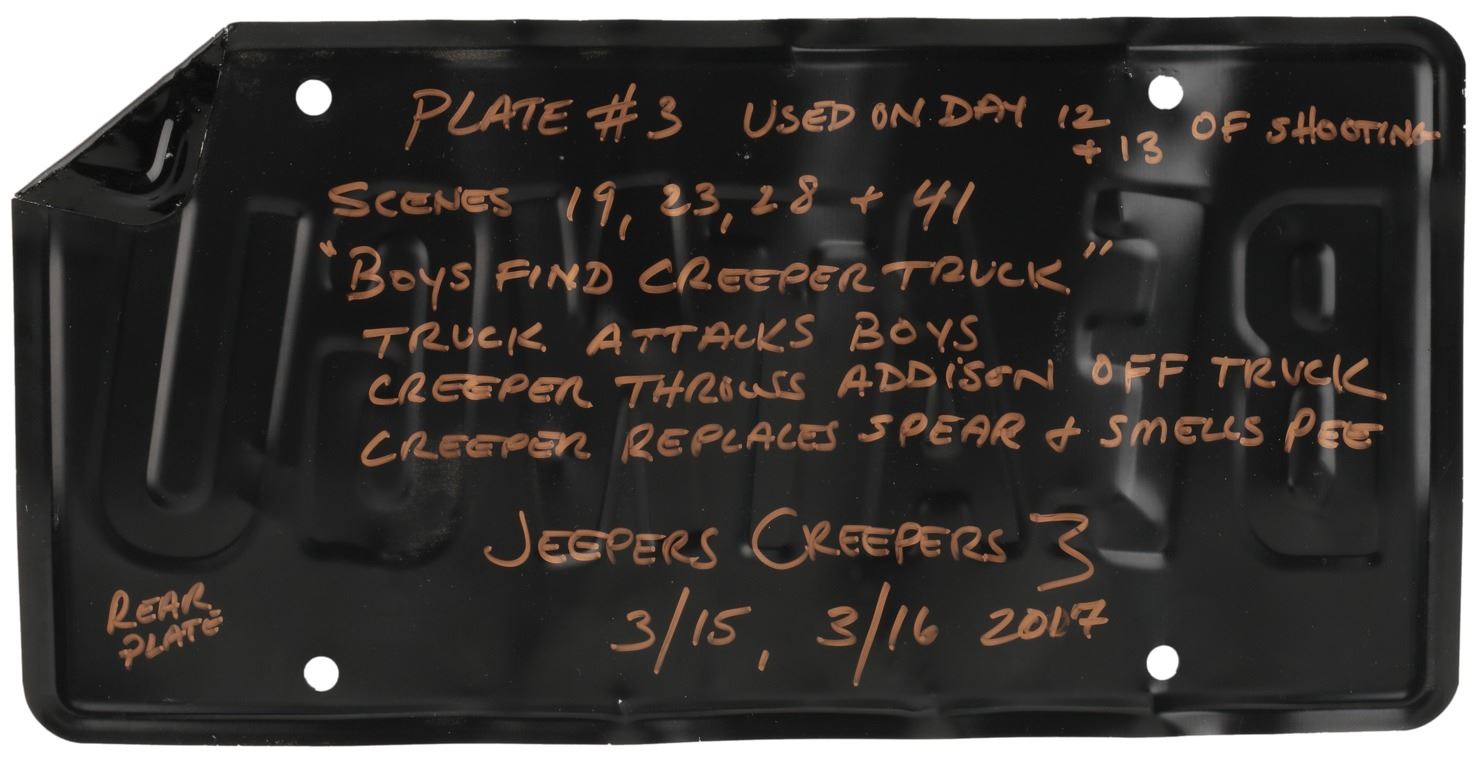 PLATE #3 USED ON DAY 12 + 13 OF SHOOTING
SCENES 19, 23, 28 + 41
"BOYS FIND CREEPER TRUCK"
TRUCK ATTACKS BOYS
CREEPER THROWS ADDISON OFF TRUCK
CREEPER REPLACES SPEAR & SMELLS PEE
JEEPERS CREEPERS 3
3/15, 3/16 2017
REAR PLATE
BEATNGU